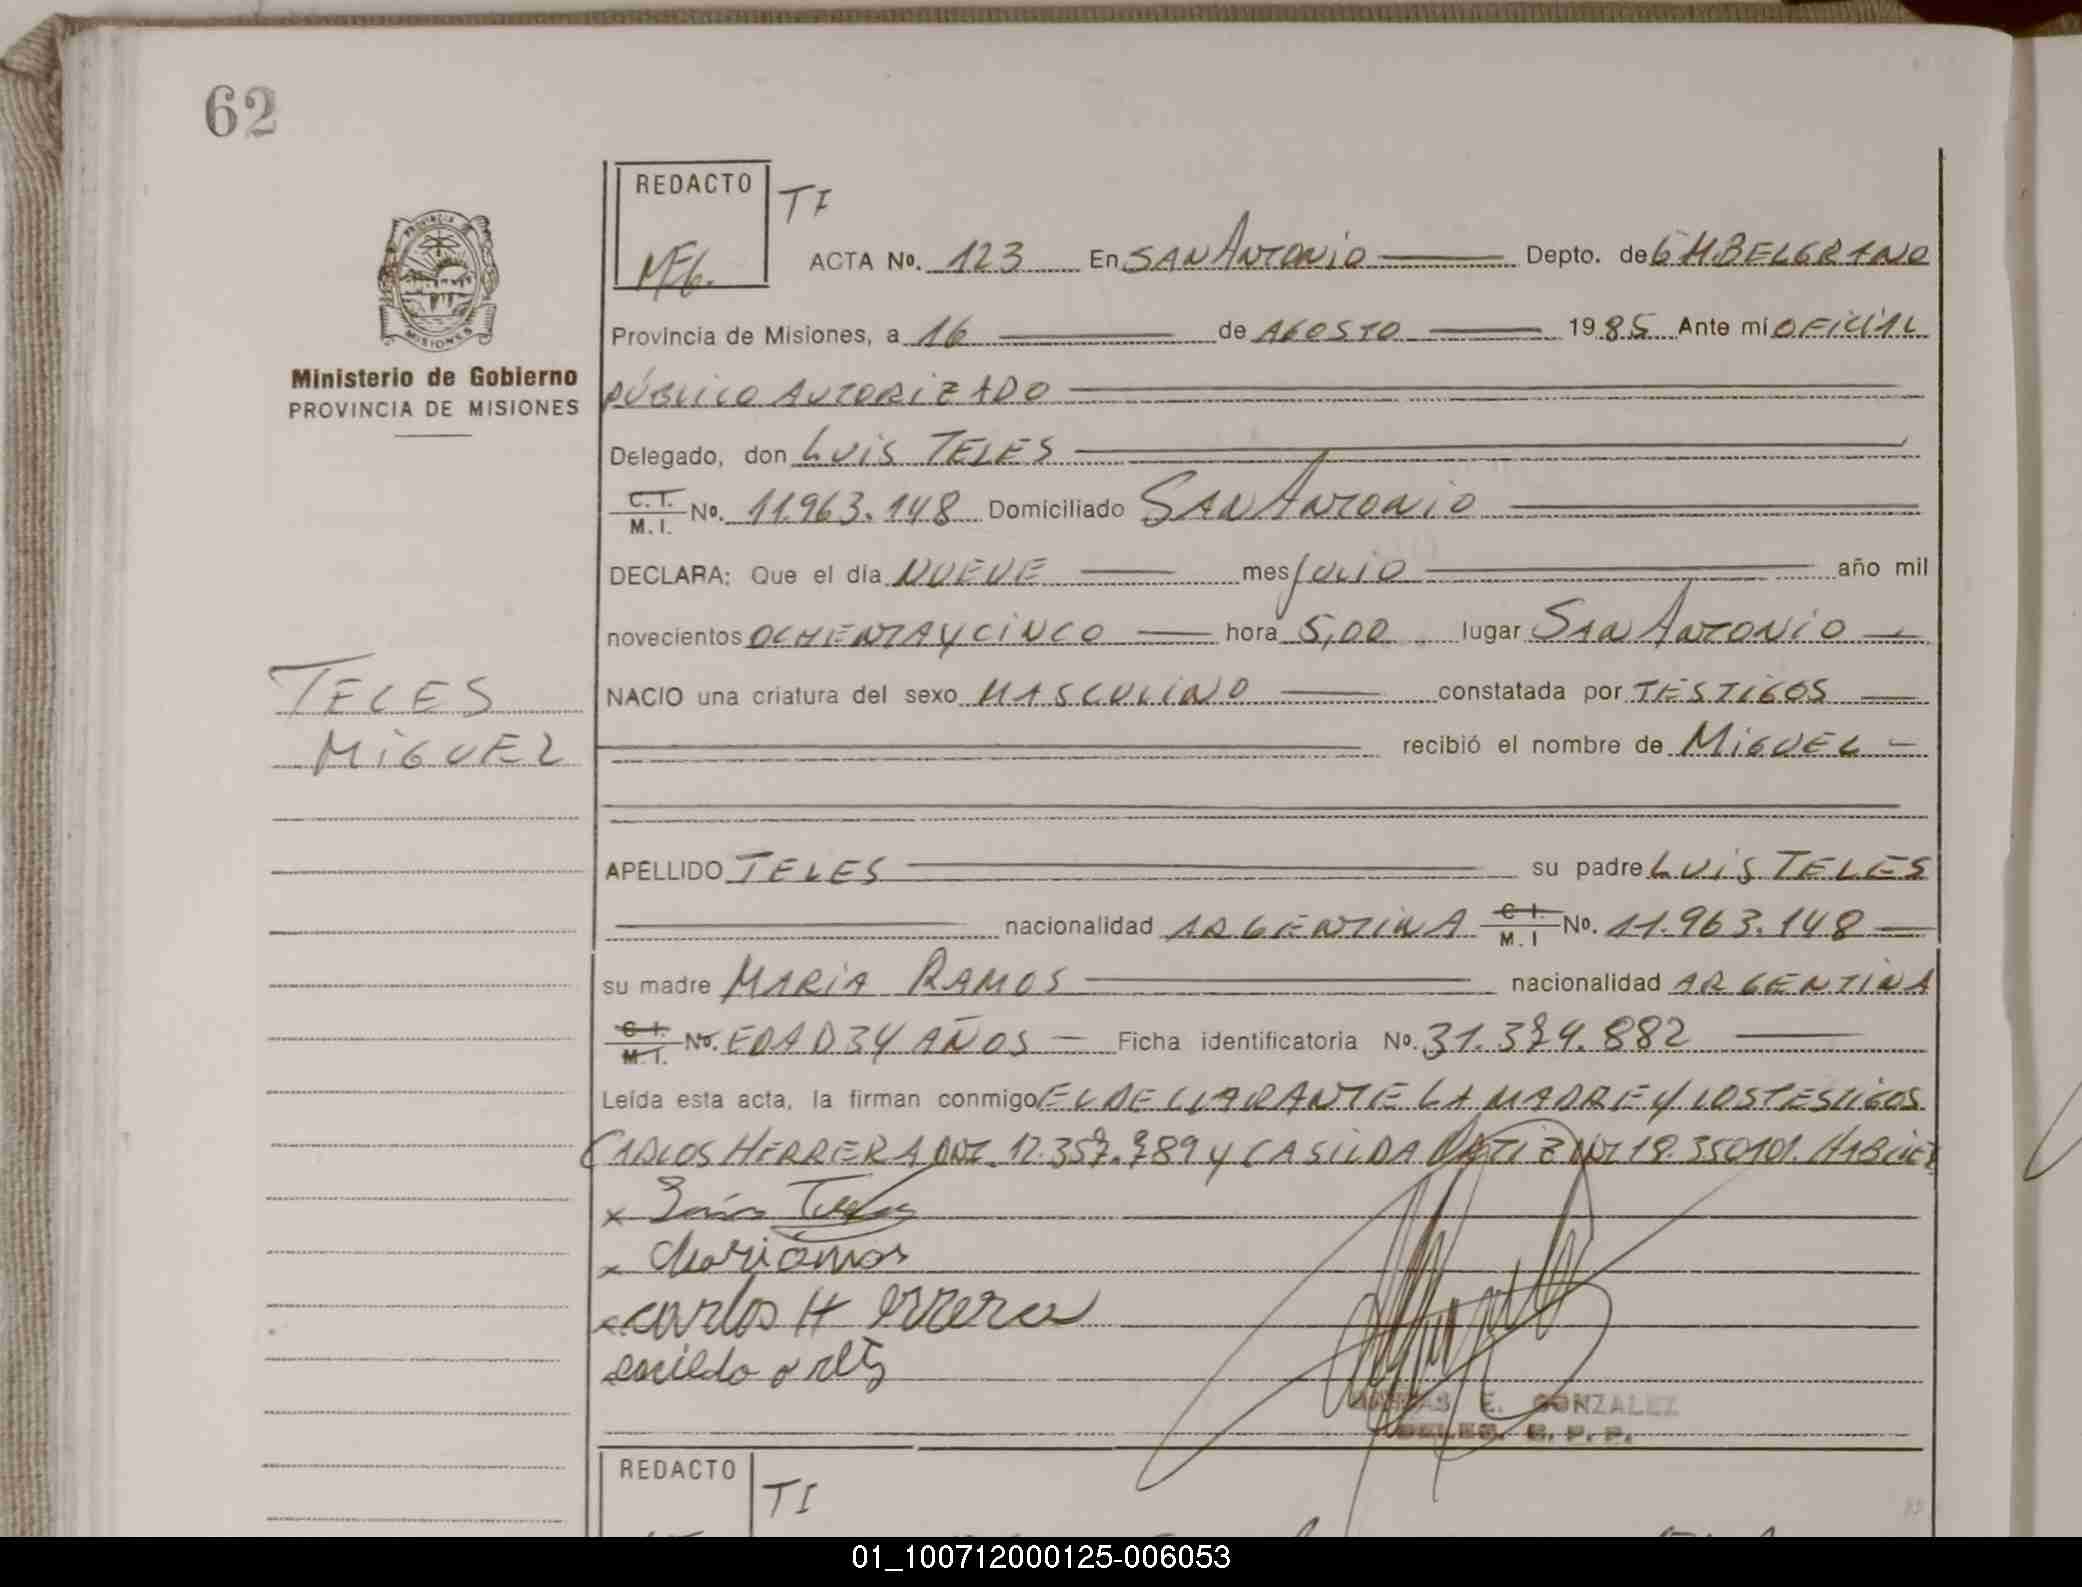 62
REDACTO
TI
MEG.
ACTA No. 123 En SAN ANTONIO Depto. de G M. BELGRANO
Provincia de Misiones, a 16 de AGOSTO 1985 Ante mi OFICIAL
PÚBLICO AUTORIZADO
PROVINCIA
MISIONES
Ministerio de Gobierno
PROVINCIA DE MISIONES
Delegado, don LUIS TELES
C. I. M. I. No. 11.963.148 Domiciliado SAN ANTONIO
DECLARA: Que el día NUEVE mes JULIO año mil
novecientos OCHENTA Y CINCO hora 5,00 lugar SAN ANTONIO
TELES
MIGUEL
NACIO una criatura del sexo MASCULINO constatada por TESTIGOS
recibió el nombre de MIGUEL
APELLIDO TELES su padre LUIS TELES
nacionalidad ARGENTINA C. I. M. I No. 11.963.148
su madre MARIA RAMOS nacionalidad ARGENTINA
C. I. M. I. No. EDAD 34 AÑOS Ficha identificatoria No. 31.379.882
Leída esta acta, la firman conmigo EL DECLARANTE LA MADRE Y LOS TESTIGOS
CARLOS HERRERA DNI. 12.357.789 Y CASILDA ORTIZ DNI 18.350101. HABILES
x Luis Teles
x Mariamos
x carlos H errera
casildo ortz
E. GONZALEZ
DELEG. R. P. P.
REDACTO
TI
01_100712000125-006053